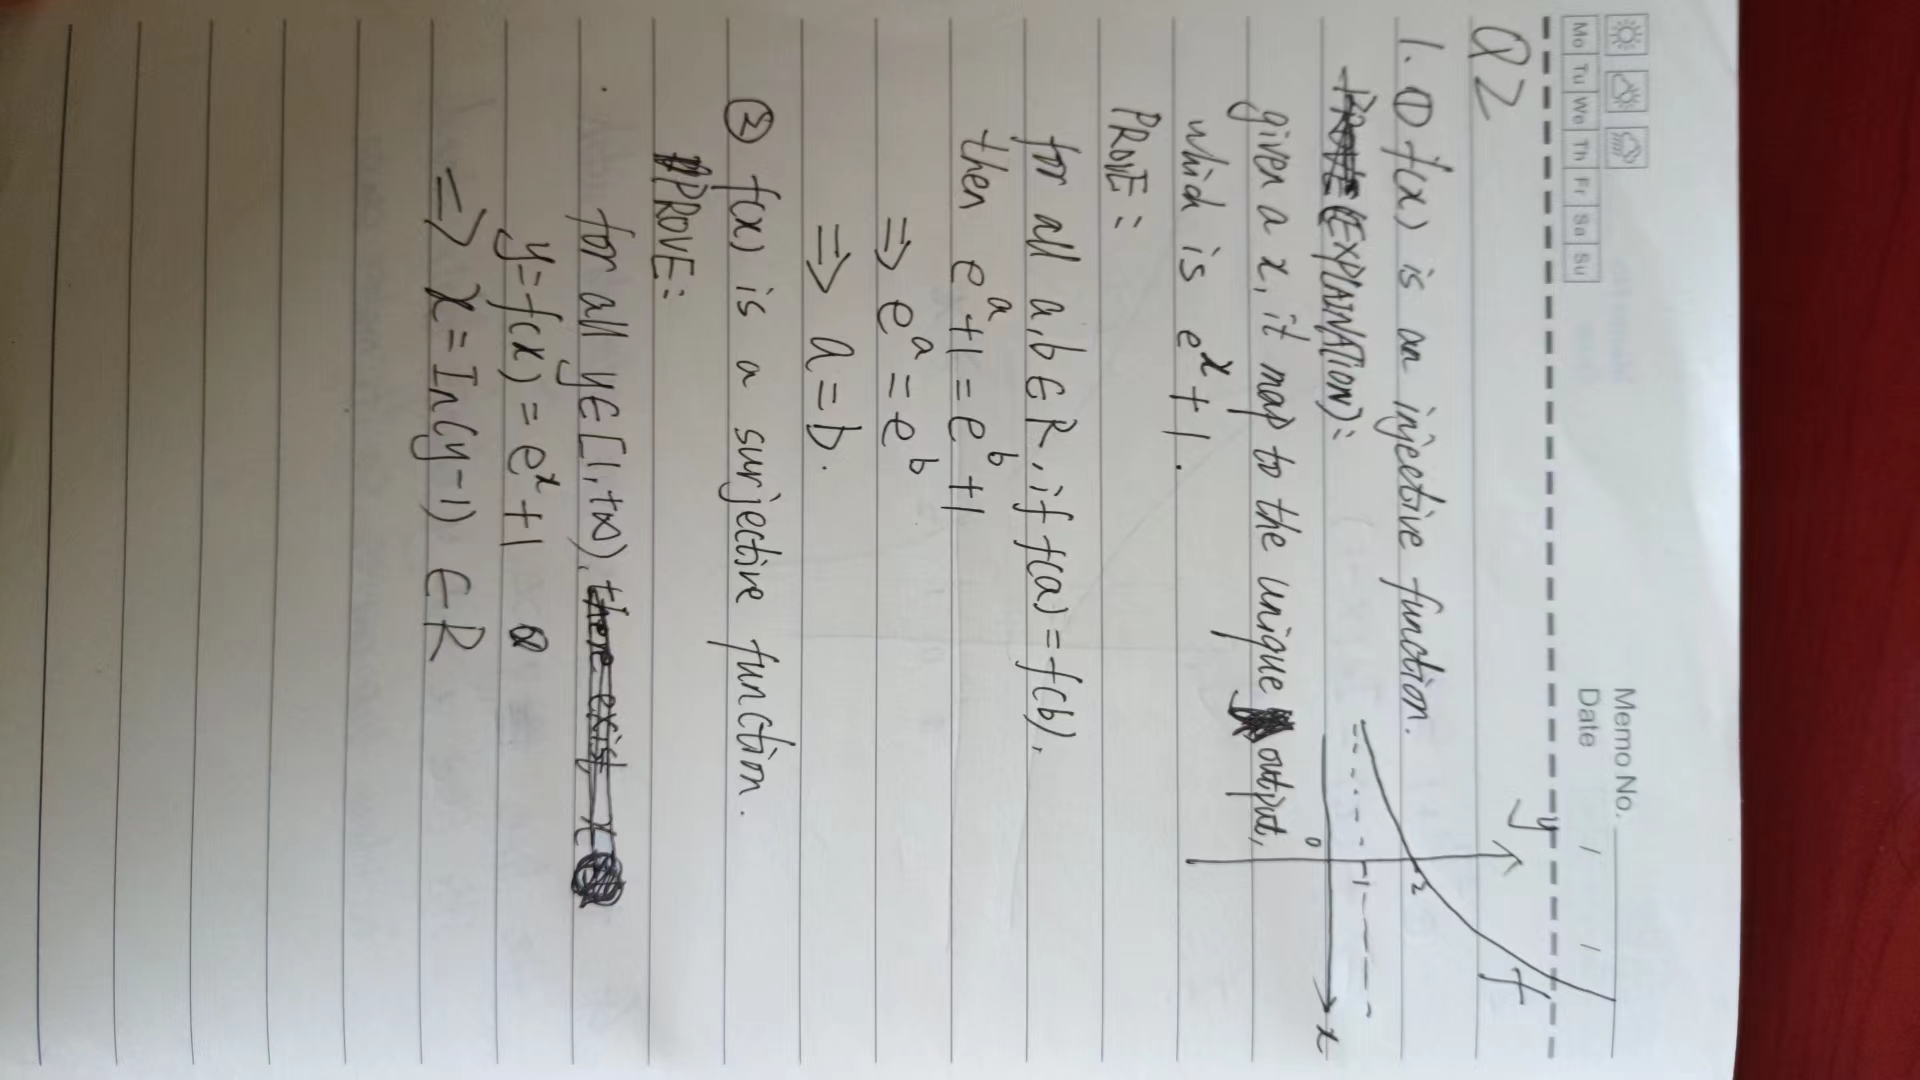 Memo No.
Date / /
Mo Tu We Th Fr Sa Su
Q2
y
f
2
1
0
x
1. ① f(x) is an injective function.
PROVE (EXPLAINATION):
given a x, it map to the unique output,
which is e^x + 1.
PROVE:
for all a,b ∈ R, if f(a) = f(b),
then e^a + 1 = e^b + 1
⇒ e^a = e^b
⇒ a = b.
② f(x) is a surjective function.
PROVE:
for all y ∈ [1, +∞), there exist x
y = f(x) = e^x + 1
⇒ x = In(y-1) ∈ R